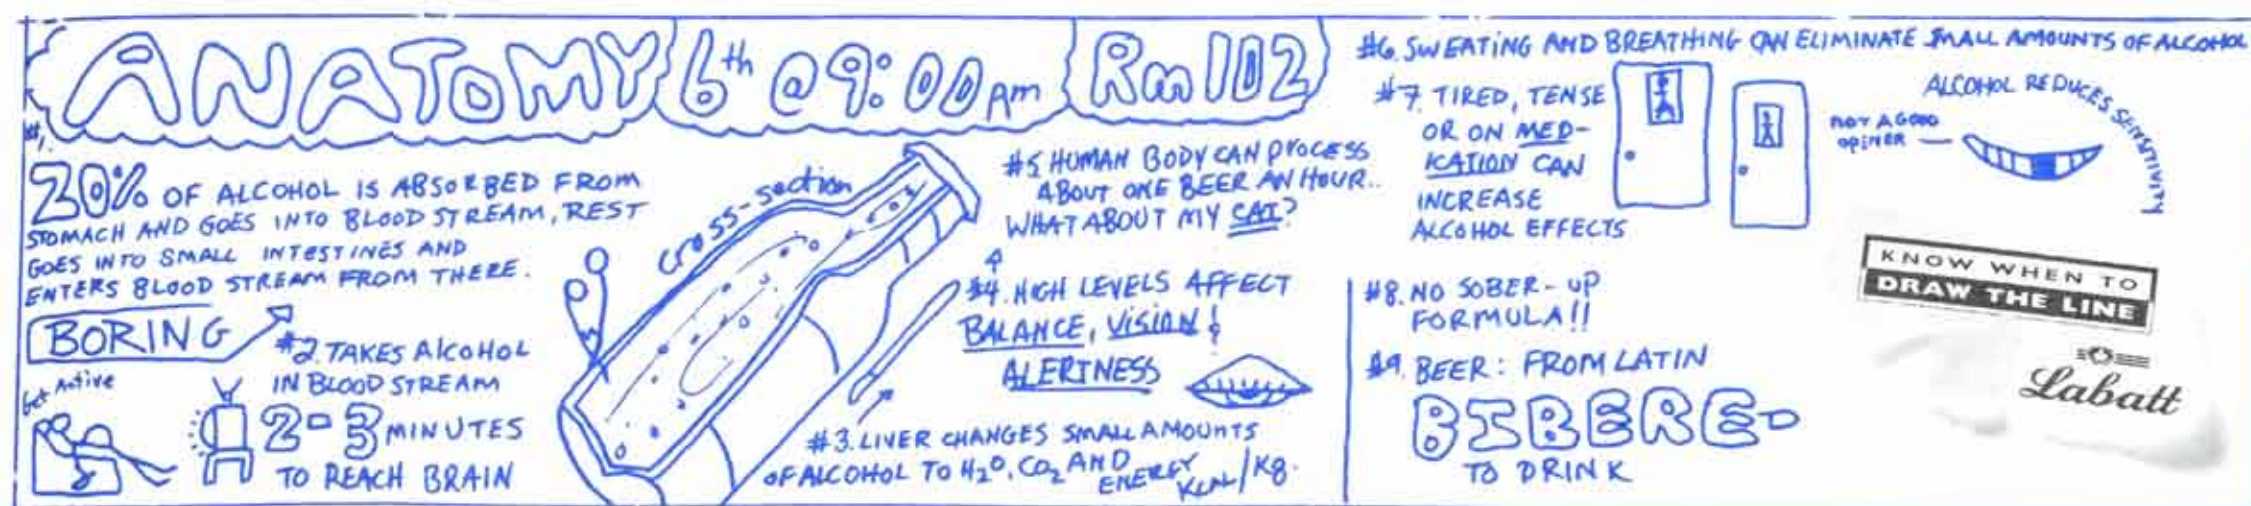 ANATOMY 6th @ 9:00 Am Rm 102
#1.
20% OF ALCOHOL IS ABSORBED FROM
STOMACH AND GOES INTO BLOOD STREAM, REST
GOES INTO SMALL INTESTINES AND
ENTERS BLOOD STREAM FROM THERE.
BORING
#2. TAKES AlCOHOL
IN BLOOD STREAM
2-3 MINUTES
TO REACH BRAIN
Get Active
cross-section
#3. LIVER CHANGES SMALL AMOUNTS
OF ALCOHOL TO H2O, CO2 AND
ENERGY
KCAL/Kg.
#4. HIGH LEVELS AFFECT
BALANCE, VISION &
ALERTNESS
#5 HUMAN BODY CAN PROCESS
ABOUT ONE BEER AN HOUR..
WHAT ABOUT MY CAT?
#6. SWEATING AND BREATHING CAN ELIMINATE SMALL AMOUNTS OF ALCOHOL
#7. TIRED, TENSE
OR ON MED-
ICATION CAN
INCREASE
ALCOHOL EFFECTS
ALCOHOL REDUCES SENSITIVITY
NOT A GOOD
OPINER
#8. NO SOBER-UP
FORMULA!!
#9. BEER: FROM LATIN
BIBERE-
TO DRINK
KNOW WHEN TO
DRAW THE LINE
Labatt